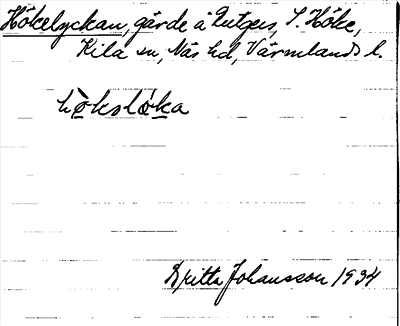 Hökelyckan, gärde å Rutgers, S. Höke,
Kila sn, Näs hd, Värmlands l.
hö̀kslö́ka
Britta Johansson 1934